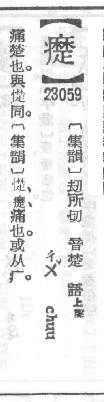 【】
23059
〔集韻〕刱所切 音楚 語上聲
ㄔㄨˇ chuu
痛也與憷同。〔集韻〕憷、、痛也或从疒。